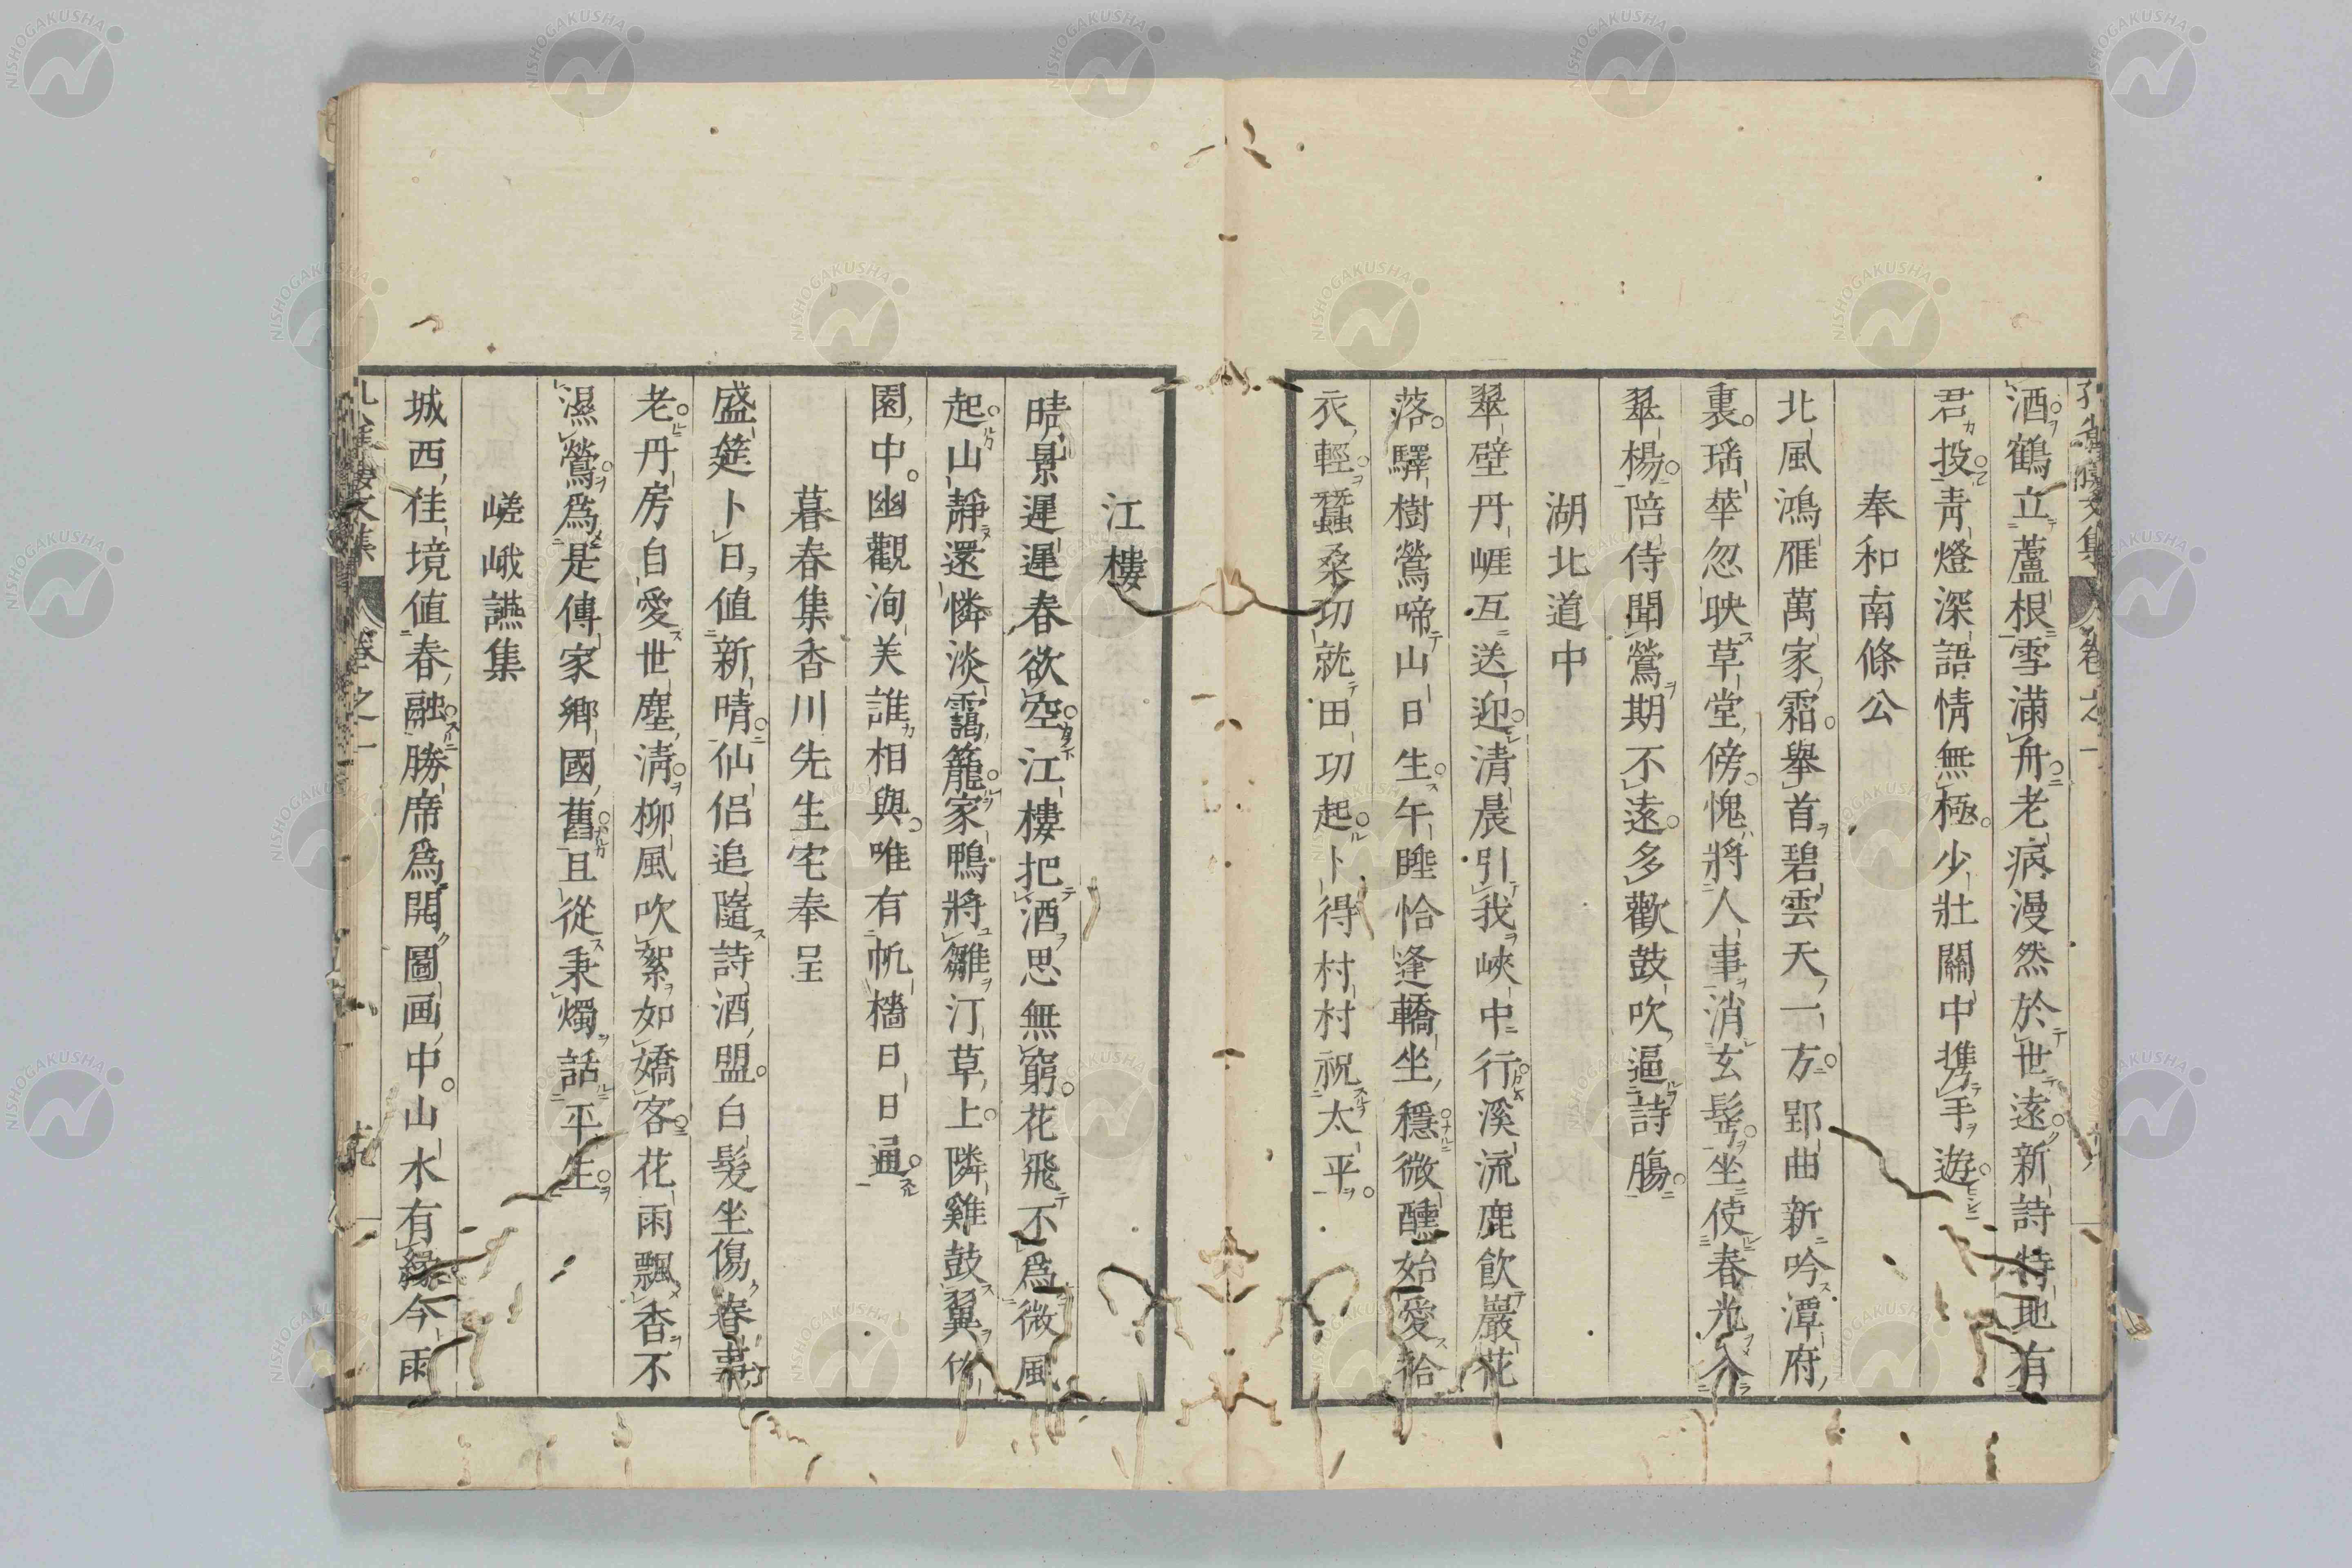 酒鶴立蘆根雪滿舟老病漫然於世遠新詩特地有
君投靑燈深語情無極少壯關中携手遊
奉和南條公
北風鴻雁萬家霜擧首碧雲天一方郢曲新吟潭府
裏瑶華忽映草堂傍愧將人事消玄髩坐使春光入
翠楊陪侍聞鶯期不遠多歡鼓吹逼詩膓
湖北道中
翠壁丹崕互送迎清晨引我峽中行溪流鹿飮巖花
落驛樹鶯啼山日生午睡恰逢轎坐穩微醺始愛袷
衣輕蠶桑功就田功起卜得村村祝太平
江樓
晴景遲遲春欲空江樓把酒思無窮花飛不爲微風
起山靜還憐淡靄籠家鴨將雛汀草上隣雞鼓翼竹
園中幽觀洵美誰相與唯有帆檣日日通
暮春集香川先生宅奉呈
盛筵卜日値新晴仙侣追隨詩酒盟白髮坐傷春事
老丹房自愛世塵淸柳風吹絮如嬌客花雨飄香不
濕鶯爲是傳家鄉國舊且從秉燭話平生
嵯峨讌集
城西佳境値春融勝席爲開圖画中山水有緣今雨